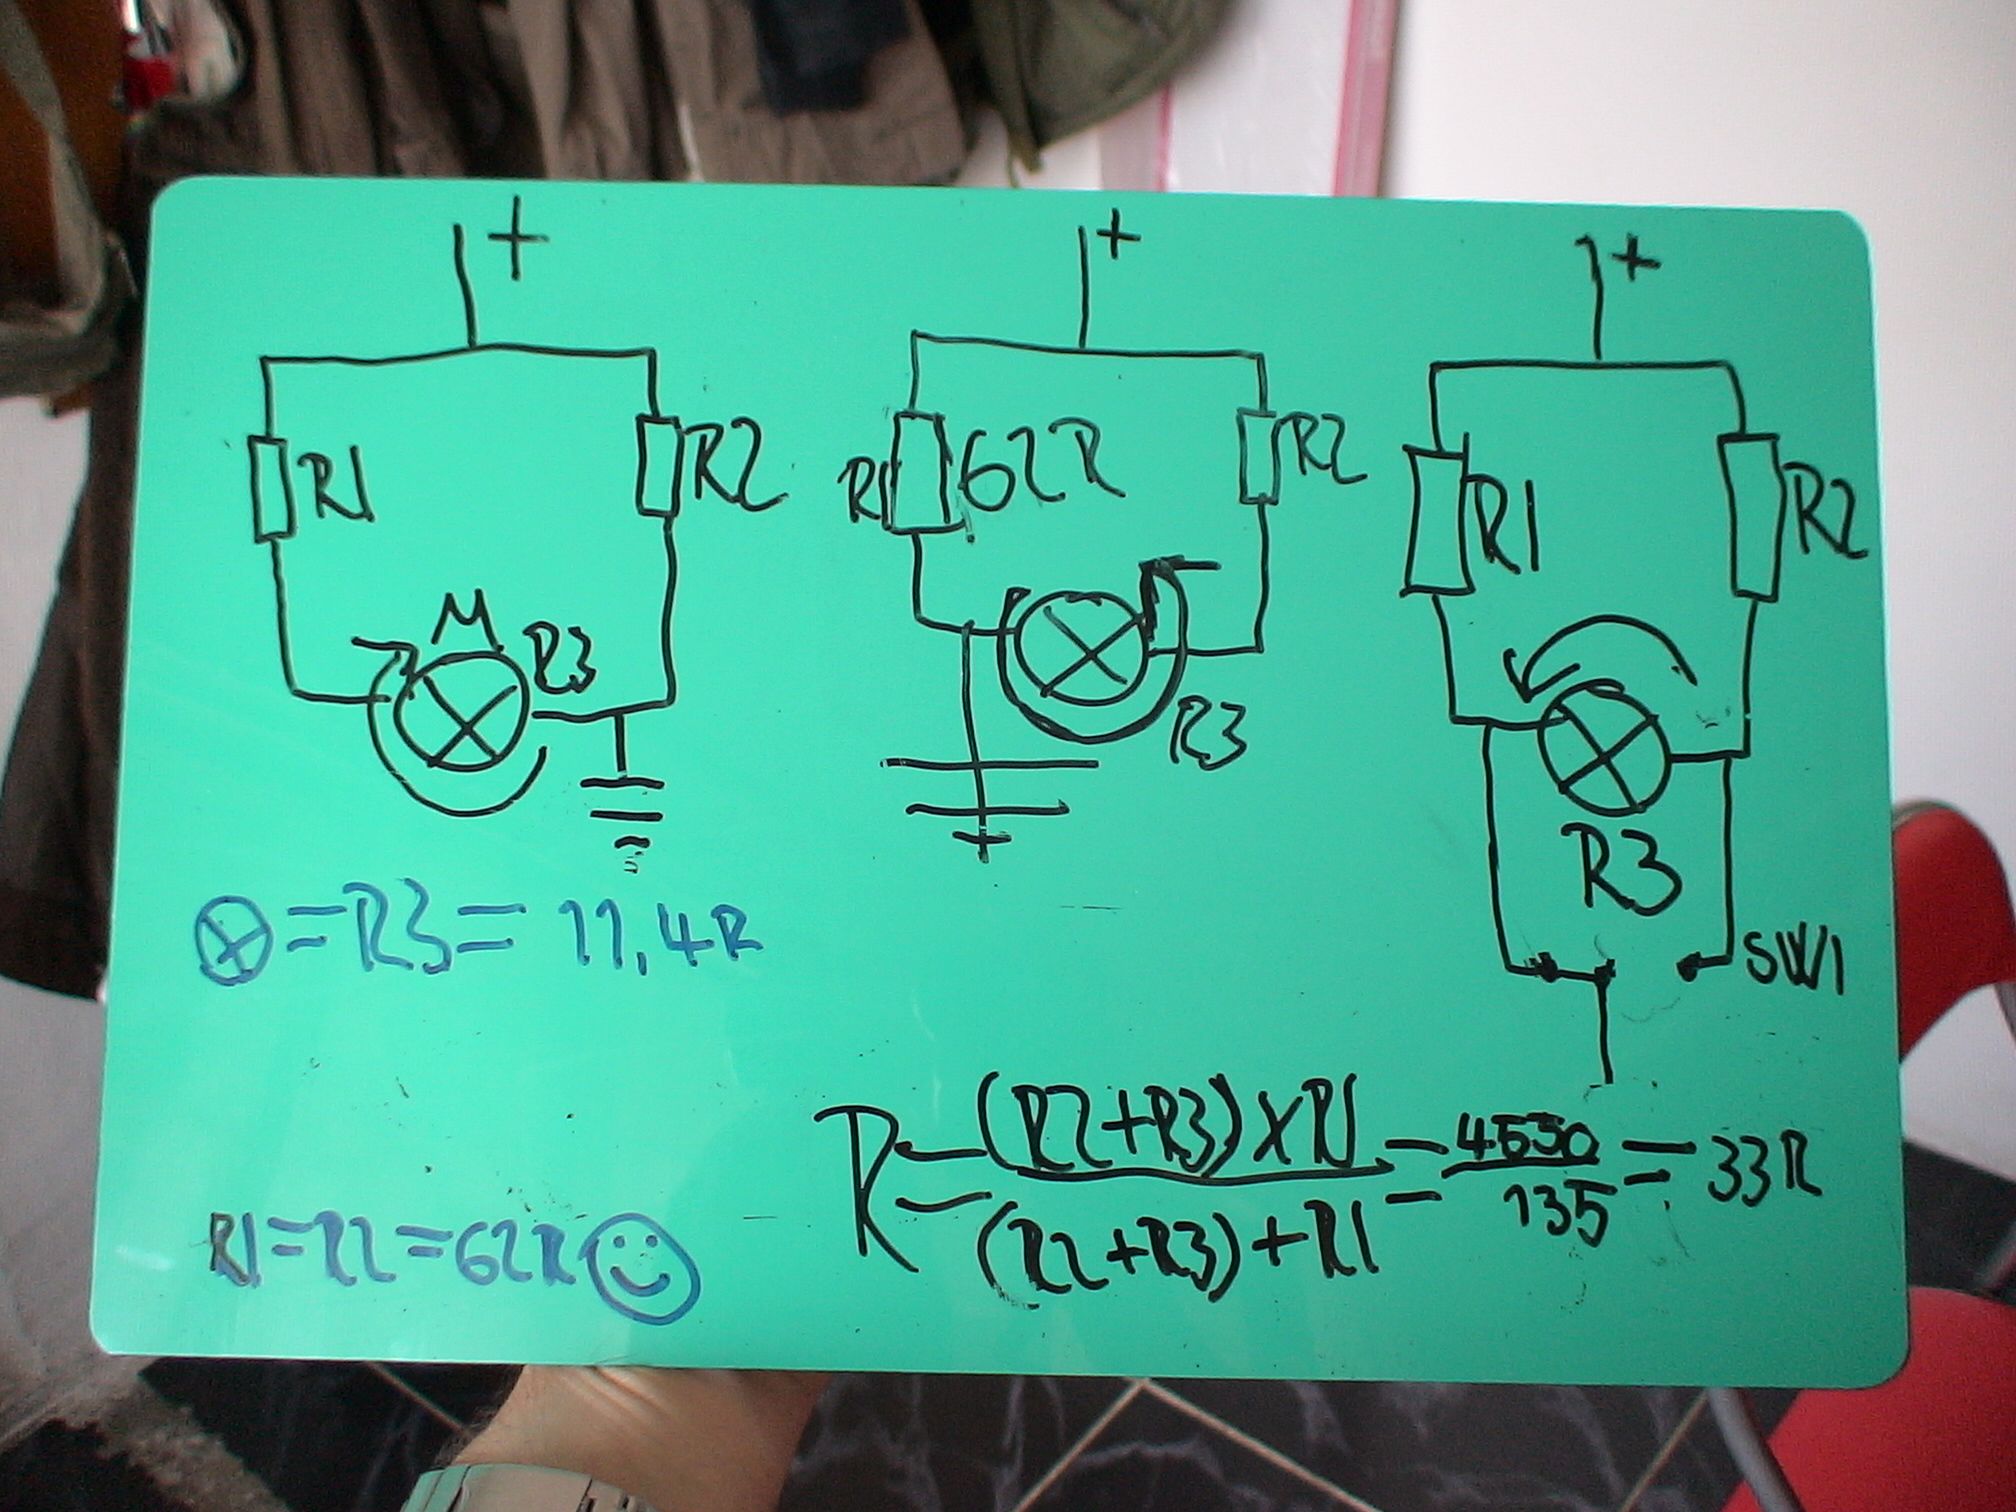 + + +
R1 R2 R1 62R R2 R1 R2
M R3 R3 R3
⊗=R3= 11,4R
SW1
R = (R2+R3)×R1 / (R2+R3)+R1 = 4550 / 135 = 33R
R1=R2=62R ☺